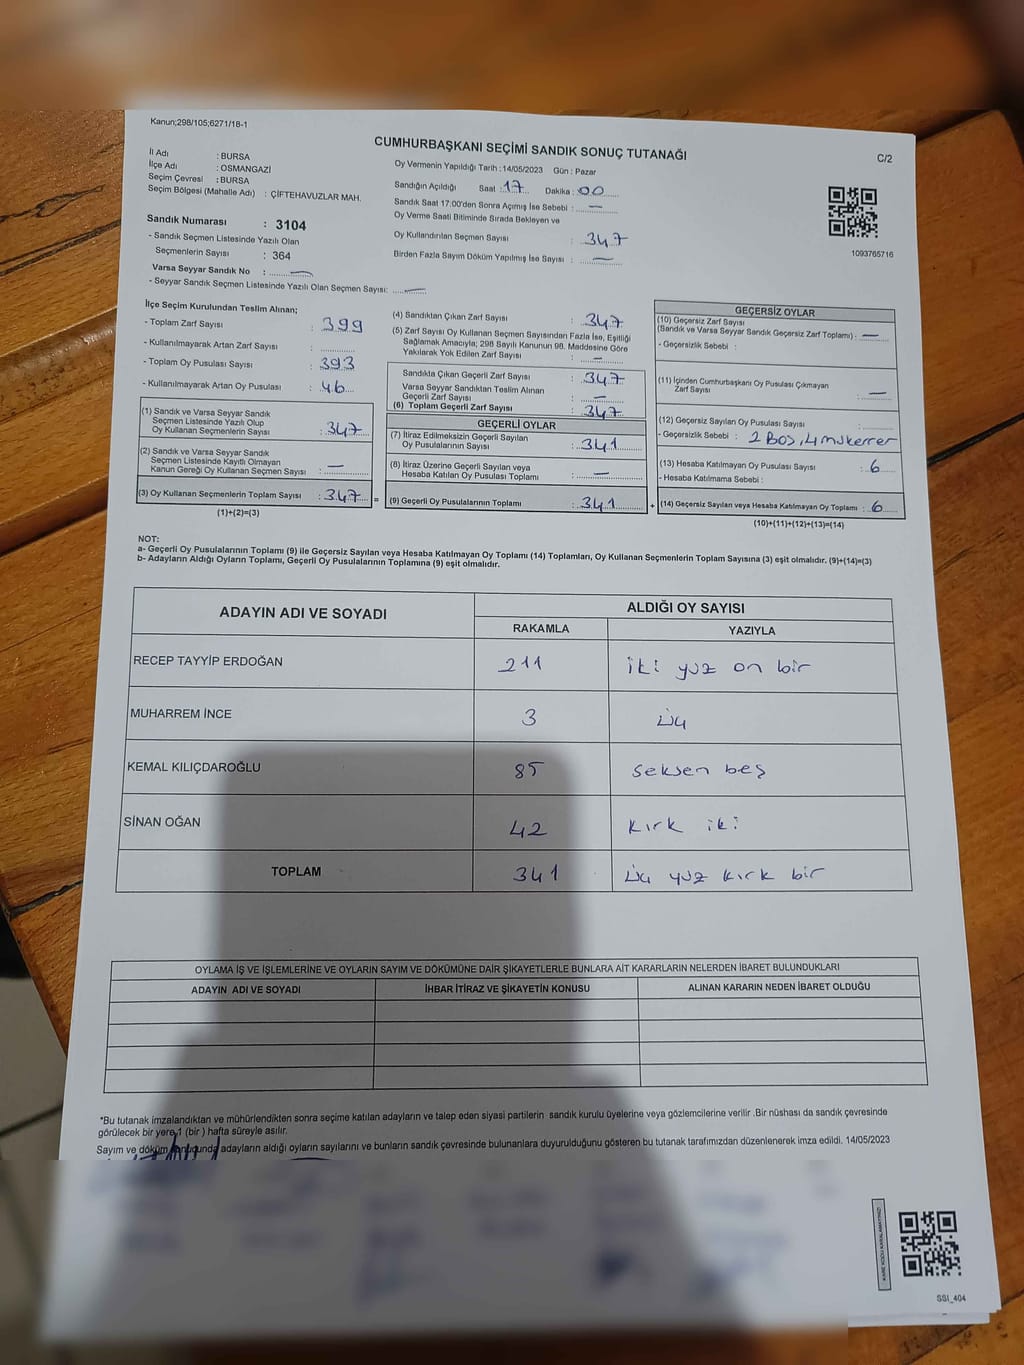 Kanun;298/105;6271/18-1
CUMHURBAŞKANI SEÇİMİ SANDIK SONUÇ TUTANAĞI
C/2
İl Adı : BURSA
İlçe Adı : OSMANGAZİ
Seçim Çevresi : BURSA
Seçim Bölgesi (Mahalle Adı) : ÇİFTEHAVUZLAR MAH.
Sandık Numarası : 3104
- Sandık Seçmen Listesinde Yazılı Olan
Seçmenlerin Sayısı : 364
Varsa Seyyar Sandık No : —
- Seyyar Sandık Seçmen Listesinde Yazılı Olan Seçmen Sayısı: —
Oy Vermenin Yapıldığı Tarih : 14/05/2023 Gün : Pazar
Sandığın Açıldığı Saat : 17 Dakika : 00
Sandık Saat 17:00'den Sonra Açımış İse Sebebi : —
Oy Verme Saati Bitiminde Sırada Bekleyen ve
Oy Kullandırılan Seçmen Sayısı : 347
Birden Fazla Sayım Döküm Yapılmış İse Sayısı : —
1093765716
İlçe Seçim Kurulundan Teslim Alınan;
- Toplam Zarf Sayısı : 399
- Kullanılmayarak Artan Zarf Sayısı :
- Toplam Oy Pusulası Sayısı : 393
- Kullanılmayarak Artan Oy Pusulası : 46
(1) Sandık ve Varsa Seyyar Sandık
Seçmen Listesinde Yazılı Olup
Oy Kullanan Seçmenlerin Sayısı : 347
(2) Sandık ve Varsa Seyyar Sandık
Seçmen Listesinde Kayıtlı Olmayan
Kanun Gereği Oy Kullanan Seçmen Sayısı : —
(3) Oy Kullanan Seçmenlerin Toplam Sayısı : 347 =
(1)+(2)=(3)
(4) Sandıktan Çıkan Zarf Sayısı : 347
(5) Zarf Sayısı Oy Kullanan Seçmen Sayısından Fazla İse, Eşitliği
Sağlamak Amacıyla; 298 Sayılı Kanunun 98. Maddesine Göre
Yakılarak Yok Edilen Zarf Sayısı : —
Sandıkta Çıkan Geçerli Zarf Sayısı : 347
Varsa Seyyar Sandıktan Teslim Alınan
Geçerli Zarf Sayısı : —
(6) Toplam Geçerli Zarf Sayısı : 347
GEÇERLİ OYLAR
(7) İtiraz Edilmeksizin Geçerli Sayılan
Oy Pusulalarının Sayısı : 341
(8) İtiraz Üzerine Geçerli Sayılan veya
Hesaba Katılan Oy Pusulası Toplamı : —
(9) Geçerli Oy Pusulalarının Toplamı : 341 +
GEÇERSİZ OYLAR
(10) Geçersiz Zarf Sayısı
(Sandık ve Varsa Seyyar Sandık Geçersiz Zarf Toplamı) : —
- Geçersizlik Sebebi :
(11) İçinden Cumhurbaşkanı Oy Pusulası Çıkmayan
Zarf Sayısı : —
(12) Geçersiz Sayılan Oy Pusulası Sayısı :
- Geçersizlik Sebebi : 2 Boş, 4 mükerrer
(13) Hesaba Katılmayan Oy Pusulası Sayısı : 6
- Hesaba Katılmama Sebebi :
(14) Geçersiz Sayılan veya Hesaba Katılmayan Oy Toplamı : 6
(10)+(11)+(12)+(13)=(14)
NOT:
a- Geçerli Oy Pusulalarının Toplamı (9) ile Geçersiz Sayılan veya Hesaba Katılmayan Oy Toplamı (14) Toplamları, Oy Kullanan Seçmenlerin Toplam Sayısına (3) eşit olmalıdır. (9)+(14)=(3)
b- Adayların Aldığı Oyların Toplamı, Geçerli Oy Pusulalarının Toplamına (9) eşit olmalıdır.
ADAYIN ADI VE SOYADI ALDIĞI OY SAYISI
RAKAMLA YAZIYLA
RECEP TAYYİP ERDOĞAN 211 iki yüz on bir
MUHARREM İNCE 3 üç
KEMAL KILIÇDAROĞLU 85 seksen beş
SİNAN OĞAN 42 kırk iki
TOPLAM 341 üç yüz kırk bir
OYLAMA İŞ VE İŞLEMLERİNE VE OYLARIN SAYIM VE DÖKÜMÜNE DAİR ŞİKAYETLERLE BUNLARA AİT KARARLARIN NELERDEN İBARET BULUNDUKLARI
ADAYIN ADI VE SOYADI İHBAR İTİRAZ VE ŞİKAYETİN KONUSU ALINAN KARARIN NEDEN İBARET OLDUĞU
*Bu tutanak imzalandıktan ve mühürlendikten sonra seçime katılan adayların ve talep eden siyasi partilerin sandık kurulu üyelerine veya gözlemcilerine verilir .Bir nüshası da sandık çevresinde
görülecek bir yere 1 (bir ) hafta süreyle asılır.
Sayım ve döküm sonucunda adayların aldığı oyların sayılarını ve bunların sandık çevresinde bulunanlara duyurulduğunu gösteren bu tutanak tarafımızdan düzenlenerek imza edildi. 14/05/2023
KARE KODU KARALAMAYINIZ!
SSI_404